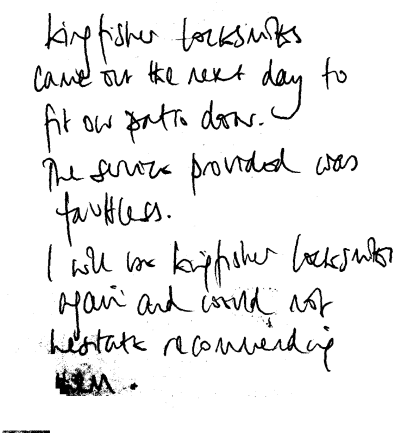 Kingfisher Locksmiths
came out the next day to
fit our patio door.
The service provided was
faultless.
I will use Kingfisher Locksmiths
again and would not
hesitate recommending
them.